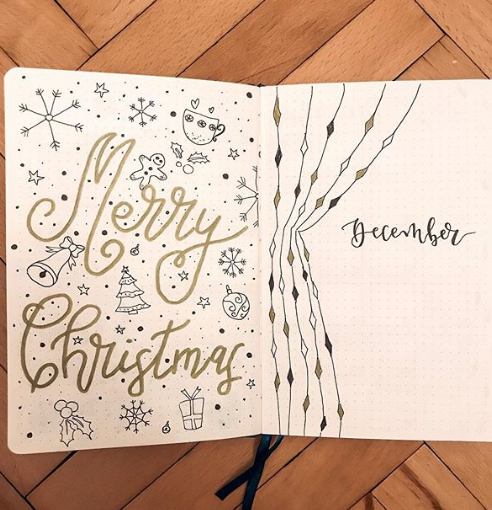 Merry
Christmas
December